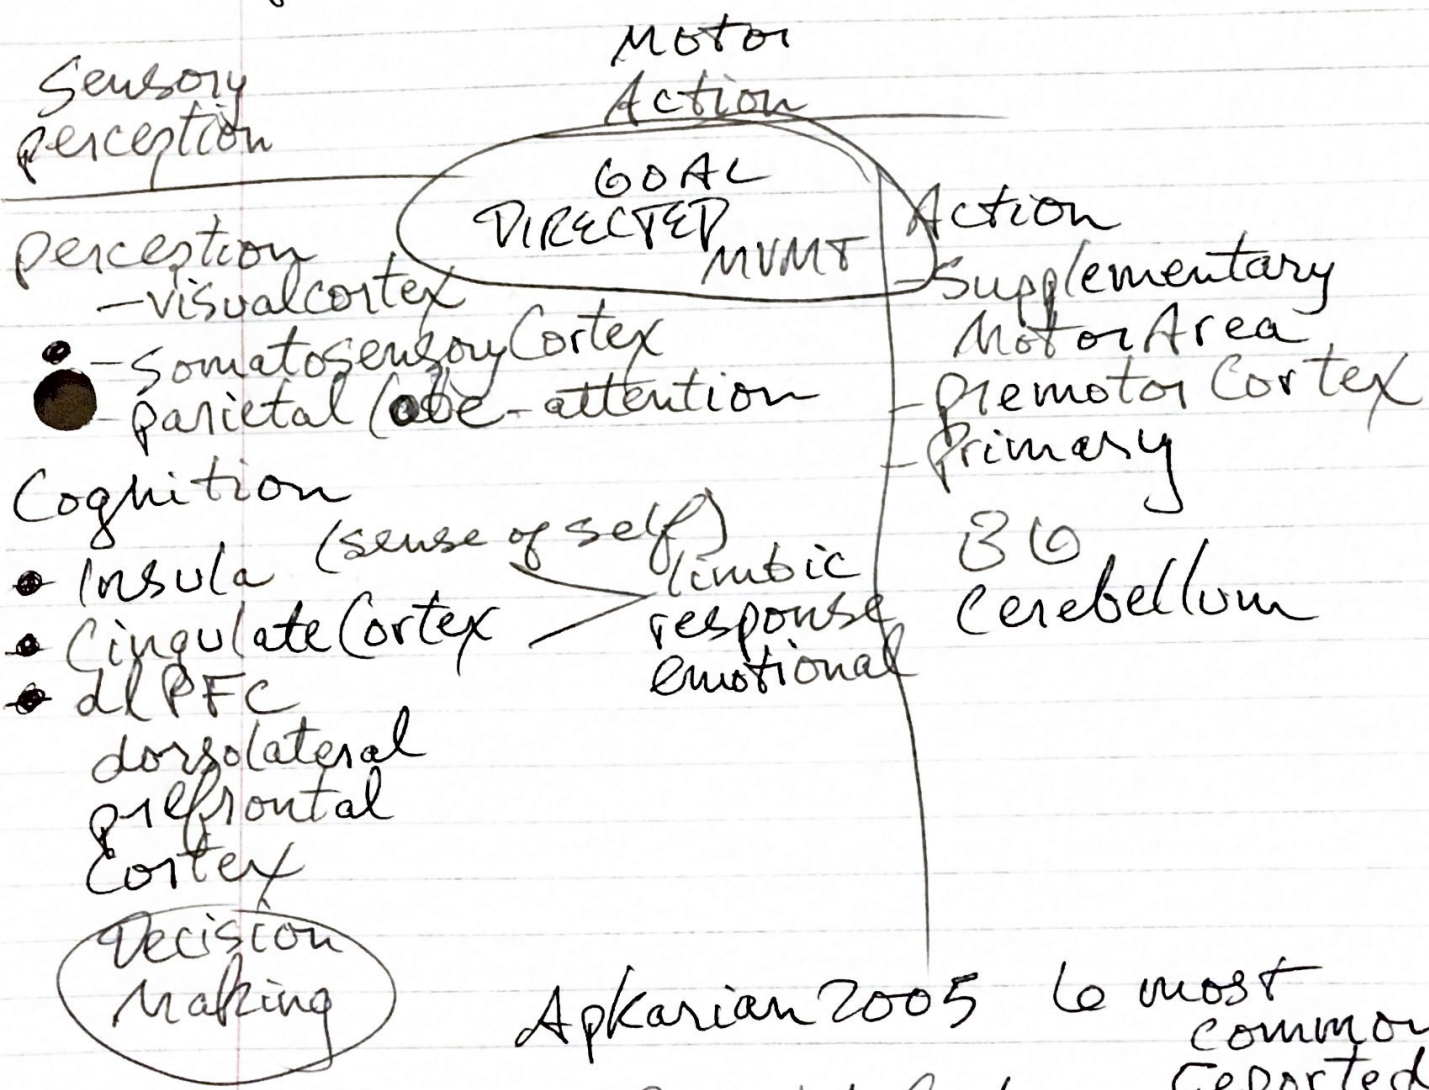 Sensory
perception
Motor
Action
GOAL
DIRECTED
MVMT
perception
-visual cortex
- somatosensory Cortex
- parietal lobe - attention
Cognition
(sense of self)
• Insula
• Cingulate Cortex
• dlPFC
dorsolateral
prefrontal
Cortex
Decision
Making
limbic
response
emotional
Action
- Supplementary
Motor Area
- premotor Cortex
- primary
BG
Cerebellum
Apkarian 2005 6 most
common
reported